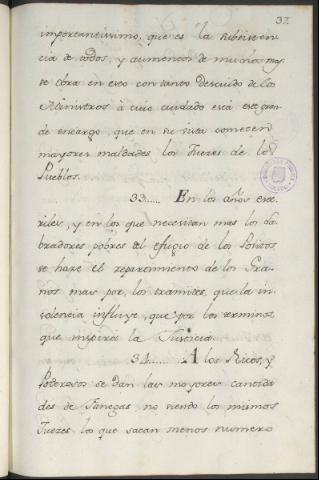 37.
importantissimo, que es la subsisten
cia de todos, y aumentos de muchos, mas
se obra en esto con tanto descuido de los
Ministros à cuio cuidado está este gran
de encargo, que en su vista cometen
mayores maldades los Jueces de los
Pueblos.
33..... En los años este
riles, y en los que necesitan mas los la
bradores pobres el efugio de los Positos
se hace el repartimiento de los Gra
nos mas por los tramites, que la in
solencia influye, que por los terminos
que inspira la Justicia.
34...... A los Ricos, y
Poderosos se dan las mayores cantida
des de Fanegas, no siendo los mismos
Jueces los que sacan menos numero